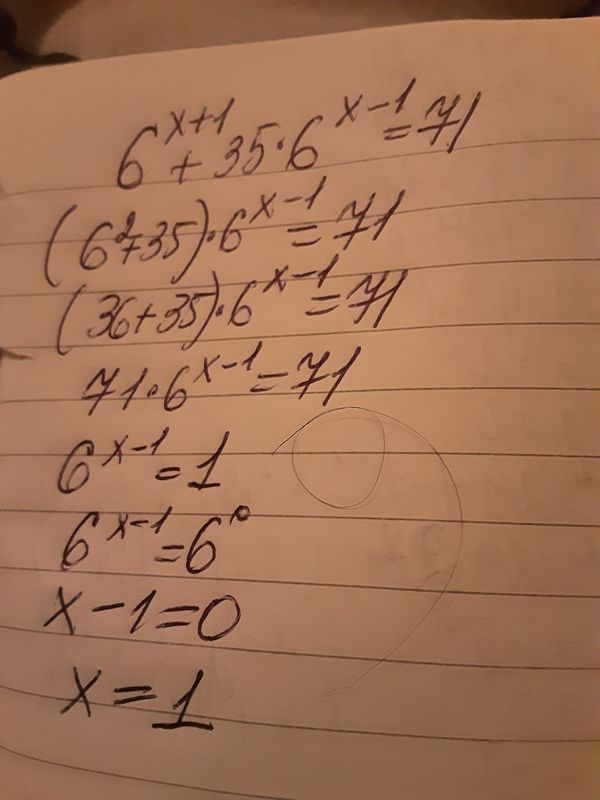 6^{x+1} + 35·6^{x-1} = 71
(6^2+35)·6^{x-1} = 71
(36+35)·6^{x-1} = 71
71·6^{x-1} = 71
6^{x-1} = 1
6^{x-1} = 6^0
x-1=0
x=1